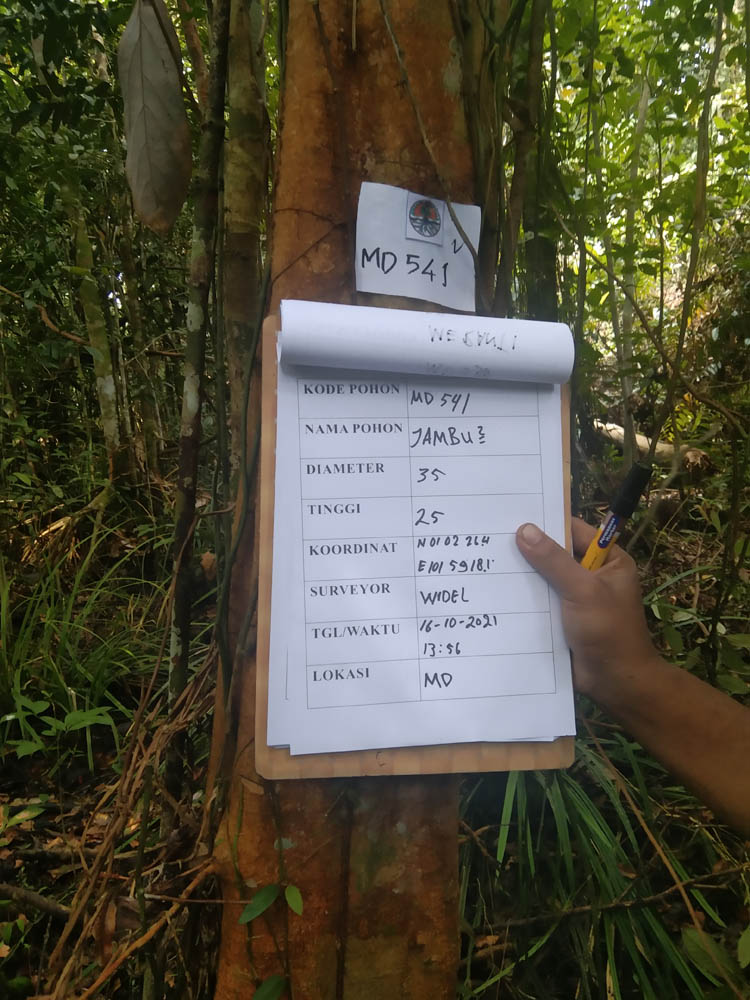 MD 541
KODE POHON MD 541
NAMA POHON JAMBU²
DIAMETER 35
TINGGI 25
KOORDINAT N 01 02 26.4
E 101 59 18.1
SURVEYOR WIDEL
TGL/WAKTU 16-10-2021
13:56
LOKASI MD